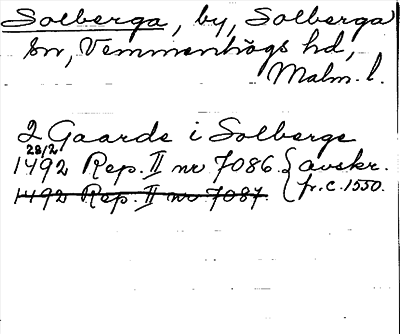 Solberga, by, Solberga
sn, Vemmenhögs hd,
Malm. l.
2 Gaarde i Solberge
28/2
1492 Rep. II nr 7086. { avskr.
1492 Rep. II nr 7087. fr. c. 1550.